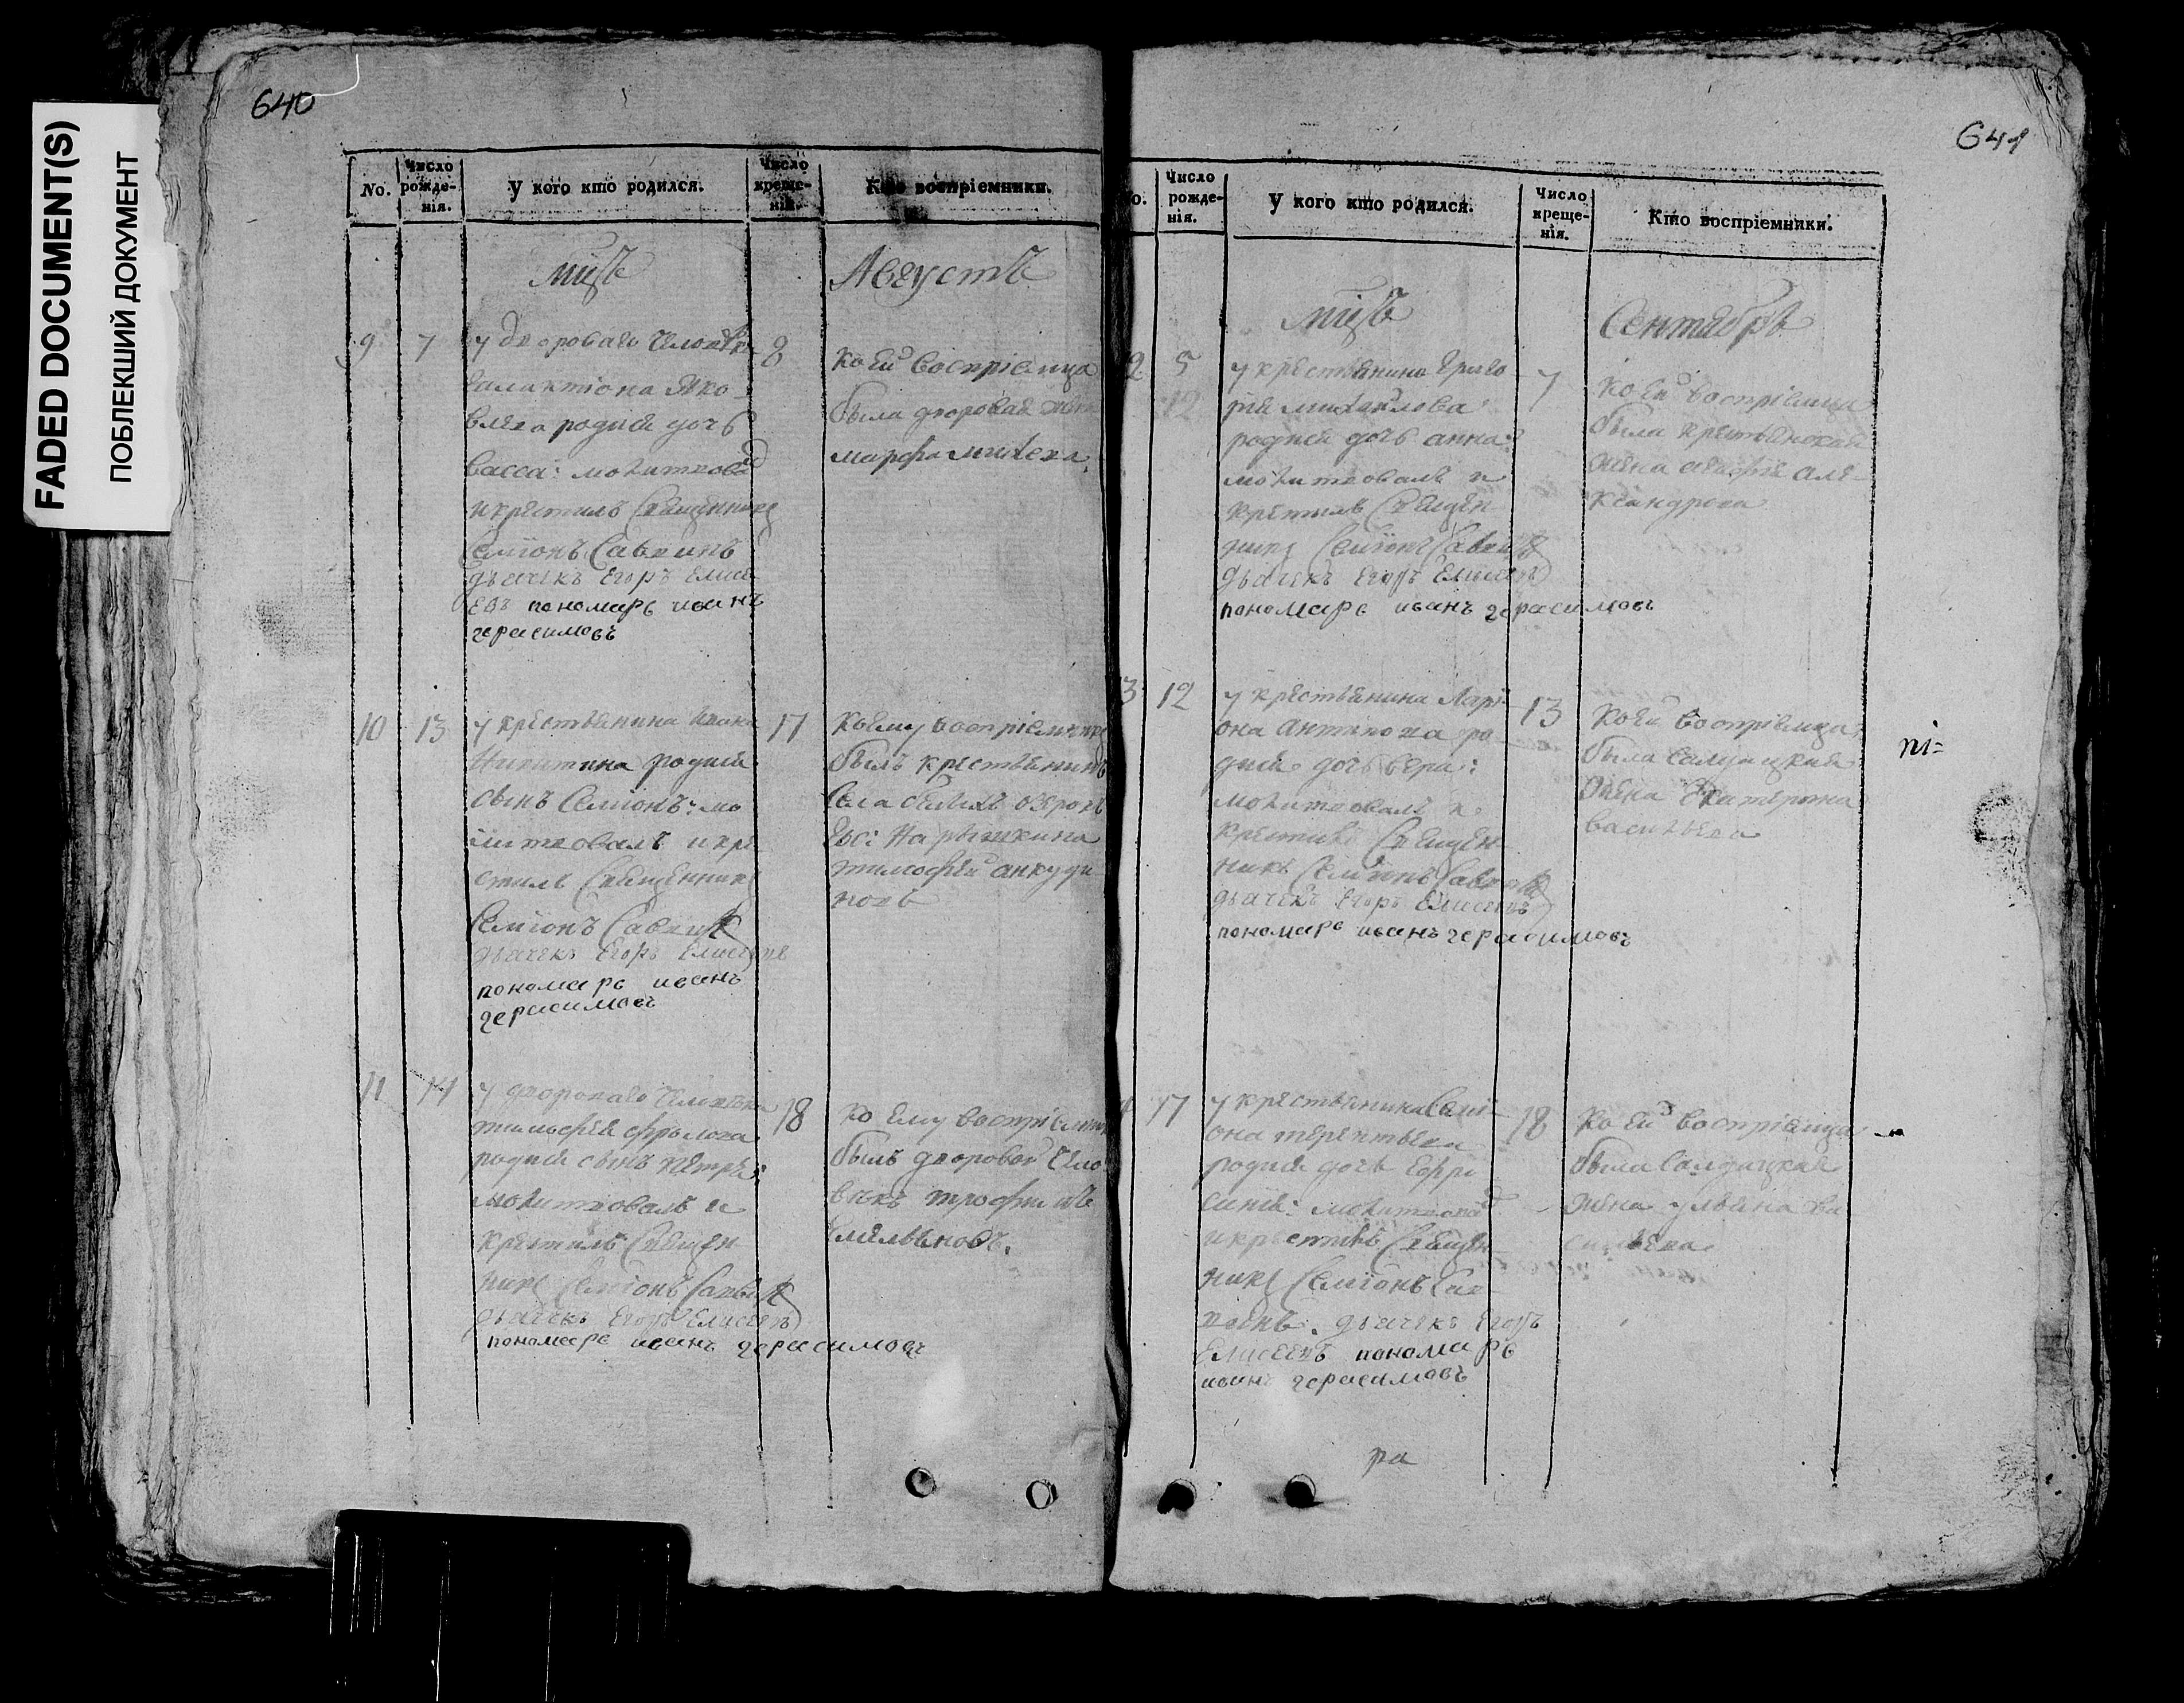 FADED DOCUMENT(S)
ПОБЛЕКШИЙ ДОКУМЕНТ
640
No.
Число рожде-нія.
У кого кто родился.
Число креще-нія.
Кто воспріемники.
мцъ
Августъ
9
7
у двороваго человѣка
галактіона Яко
влева родися дочь
васса: молитвовал
и крестилъ Священникъ
Семіонъ Саввинъ
дьячекъ Егоръ Елисе
евъ пономарь иванъ
герасимовъ
8
Коей воспріемница
была дворовая жена
марфа михева
10
13
у крестьянина Ивана
Никитина родися
сынъ Семіонъ: мо
литвовалъ и кре
стилъ Священникъ
Семіонъ Саввинъ
дьячекъ Егоръ Елисеевъ
пономарь иванъ
герасимовъ
17
Коему воспріемникъ
былъ крестьянинъ
Села бѣлыхъ
Нарышкина
тимофей анкуди
новъ
11
14
у двороваго человѣка
тимофея фролова
родися сынъ петръ:
молитвовалъ и
крестилъ Священ
никъ Семіонъ Саввинъ
дьячекъ Егоръ Елисеевъ
пономарь иванъ герасимовъ
18
Коему воспріемникъ
былъ дворовой чело
вѣкъ трофимъ
Емельяновъ.
641
No.
Число рожде-нія.
У кого кто родился.
Число креще-нія.
Кто воспріемники.
мцъ
Сентябрь
2
5
12
у крестьянина Григо
рія михайлова
родися дочь анна:
молитвовалъ и
крестилъ Священ
никъ Семіонъ Саввинъ
дьячекъ Егоръ Елисеевъ
пономарь иванъ герасимовъ
7
Коей воспріемница
была крестьянская
жена але
ксандрова
3
12
у крестьянина Ларі
она антипова ро
дися дочь вера:
молитвовалъ и
крестилъ Священ
никъ Семіонъ Саввинъ
дьячекъ Егоръ Елисеевъ
пономарь иванъ герасимовъ
13
Коей воспріемница
была Салдацкая
жена Екатерина
васильева
ni=
4
17
у крестьянина Семі
она терентьева
родися дочь Ефро
синія: молитвовал
и крестилъ Священ
никъ Семіонъ Сав
винъ. дьячекъ Егоръ
Елисеевъ пономарь
иванъ герасимовъ
18
Коей воспріемница
была Салдацкая
жена ульяна ва
сильева
ра